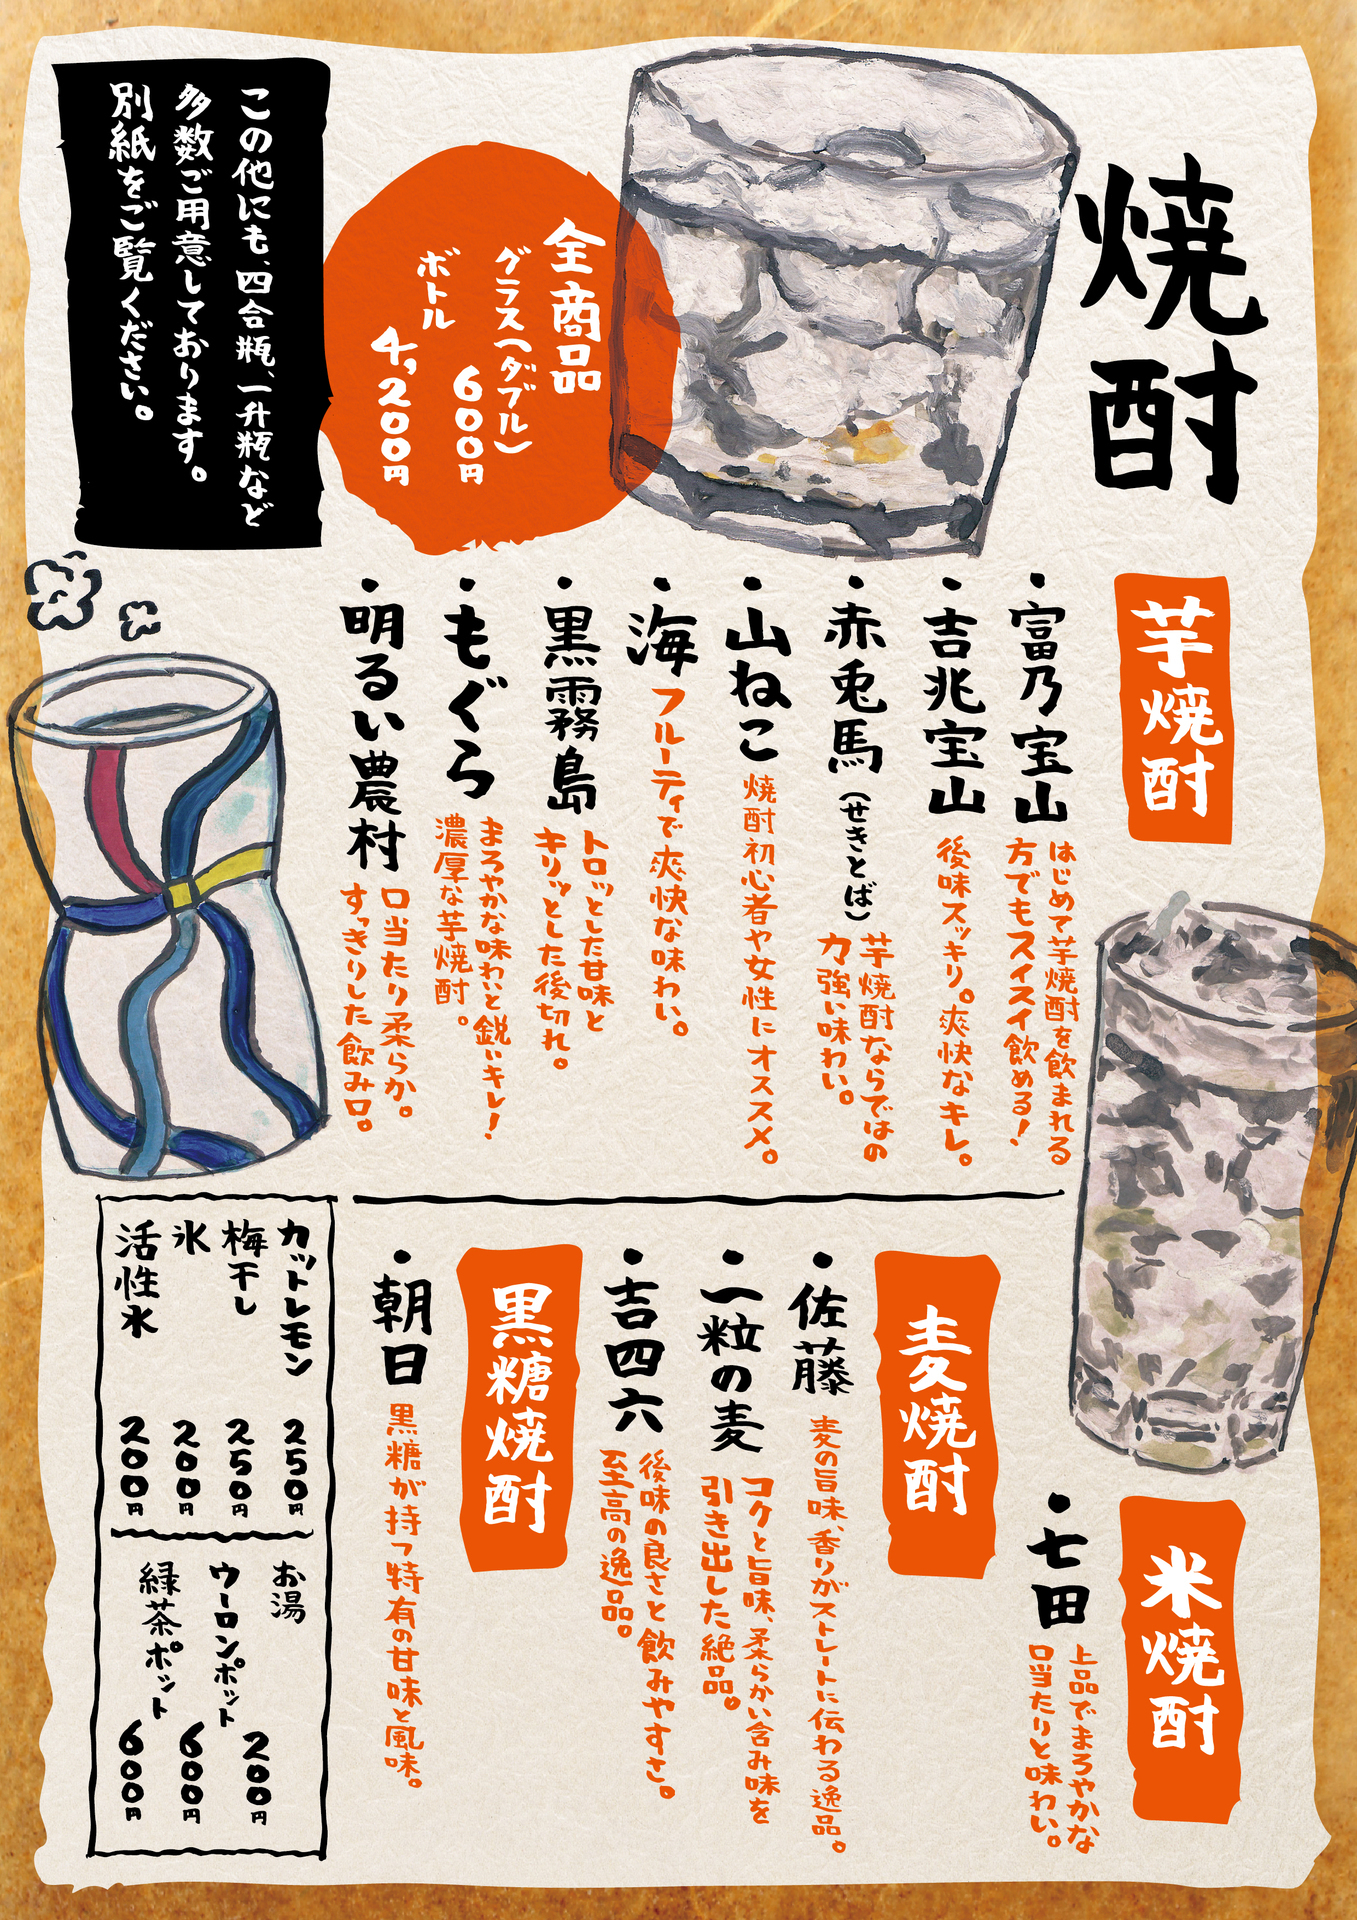 焼酎
全商品
グラス(ダブル)
600円
ボトル
4,200円
この他にも、四合瓶、一升瓶など
多数ご用意しております。
別紙をご覧ください。
芋焼酎
・富乃宝山
はじめて芋焼酎を飲まれる
方でもスイスイ飲める!
・吉兆宝山
後味スッキリ。爽快なキレ。
・赤兎馬(せきとば)
芋焼酎ならではの
力強い味わい。
・山ねこ
焼酎初心者や女性にオススメ。
・海
フルーティで爽快な味わい。
・黒霧島
トロッとした甘味と
キリッとした後切れ。
・もぐら
まろやかな味わいと鋭いキレ!
濃厚な芋焼酎。
・明るい農村
口当たり柔らか。
すっきりした飲み口。
米焼酎
・七田
上品でまろやかな
口当たりと味わい。
麦焼酎
・佐藤
麦の旨味、香りがストレートに伝わる逸品。
・一粒の麦
コクと旨味、柔らかい含み味を
引き出した絶品。
・吉四六
後味の良さと飲みやすさ。
至高の逸品。
黒糖焼酎
・朝日
黒糖が持つ特有の甘味と風味。
カットレモン 250円
梅干し 250円
氷 200円
活性水 200円
お湯 200円
ウーロンポット 600円
緑茶ポット 600円